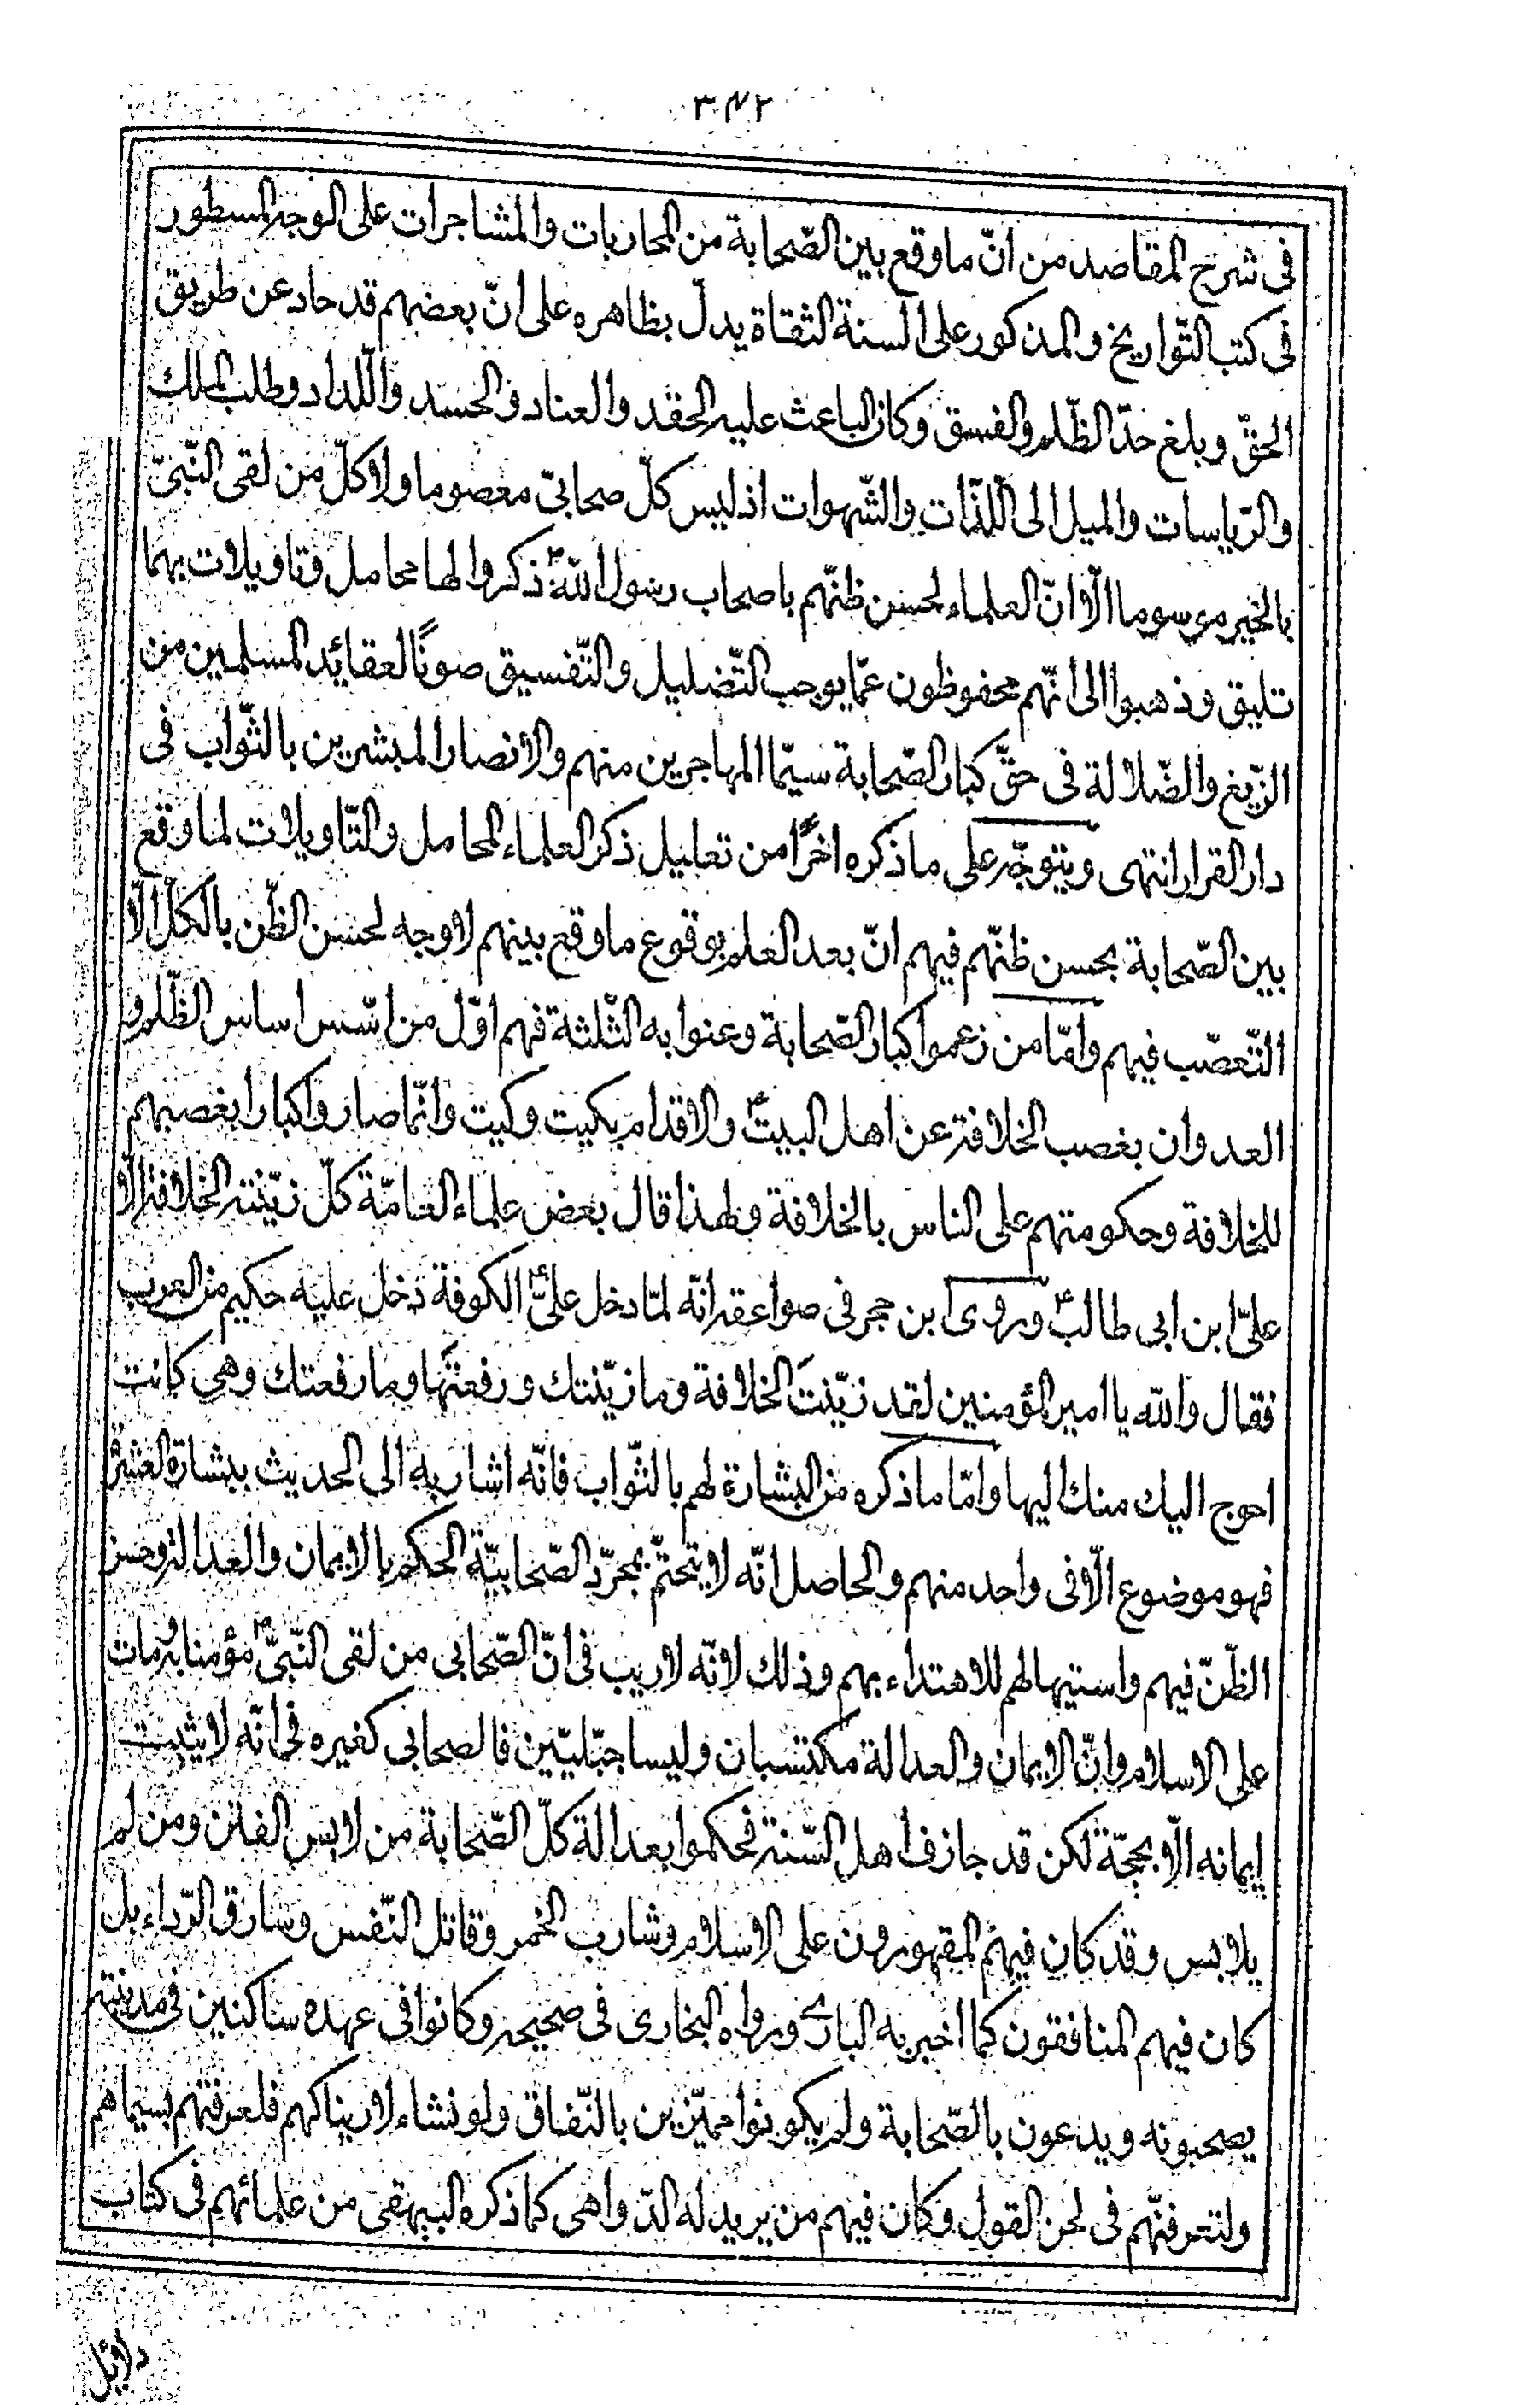 ٣٤٢
فى شرح المقاصد من انّ ما وقع بين الصّحابة من المحاربات والمشاجرات على الوجه المسطور
فى كتب التّواريخ والمذكور على السنة الثقاة يدلّ بظاهره على انّ بعضهم قد حاد عن طريق
الحقّ وبلغ حدّ الظّلم والفسق وكان الباعث عليه الحقد والعناد والحسد واللّداد وطلب الملك
والرّياسات والميل الى اللّذّات والشّهوات اذ ليس كلّ صحابىّ معصوما ولا كلّ من لقى النّبىّ
بالخير موسوما الّا انّ العلماء لحسن ظنّهم باصحاب رسول اللهؐ ذكروا لها محامل وتاويلات بهما
تليق وذهبوا الى انّهم محفوظون عمّا يوجب التّضليل والتّفسيق صونًا لعقائد المسلمين من
الزّيغ والضّلالة فى حقّ كبار الصّحابة سيّما المهاجرين منهم والأنصار المبشرين بالثّواب فى
دار القرار انتهى ويتوجّه على ما ذكره اخرًا من تعليل ذكر العلماء المحامل والتّاويلات لما وقع
بين الصّحابة بحسن ظنّهم فيهم انّ بعد العلم بوقوع ما وقع بينهم لا وجه لحسن الظّن بالكلّ الّا
التّعصّب فيهم وامّا من زعموا كبار الصّحابة وعنوا به الثّلثة فهم اوّل من اسّس اساس الظّلم و
العدوان بغصب الخلافة عن اهل البيتؑ والاقدام بكيت وكيت وانّما صاروا كبارا بغصبهم
للخلافة وحكومتهم على الناس بالخلافة ولهذا قال بعض علماء العامّة كلّ زيّنته الخلافة الّا
علىّ ابن ابى طالبؑ وروى ابن حجر فى صواعقه انّه لمّا دخل علىّؑ الكوفة دخل عليه حكيم من العرب
فقال والله يا امير المؤمنين لقد زيّنتَ الخلافة وما زيّنتك ورفعتَها وما رفعتك وهى كانت
احوج اليك منك اليها وامّا ما ذكره من البشارة لهم بالثّواب فانّه اشار به الى الحديث ببشارة العشرة
فهو موضوع الّا فى واحد منهم والحاصل انّه لا يتحتّم بمجرّد الصّحابيّة الحكم بالايمان والعدالة وحسن
الظّنّ فيهم واستيهالهم للاهتداء بهم وذلك لانّه لا ريب فى انّ الصّحابى من لقى النّبىّؐ مؤمنا به ومات
على الاسلام وانّ الايمان والعدالة مكتسبان وليسا جبّليّين فالصحابى كغيره فى انّه لا يثبت
إيمانه الّا بحجّة لكن قد جازف اهل السّنة فحكموا بعدالة كلّ الصّحابة من لابس الفتن ومن لم
يلابس وقد كان فيهم المقهورون على الاسلام وشارب الخمر وقاتل النّفس وسارق الرّداء بل
كان فيهم المنافقون كما اخبر به البارى ورواه البخارى فى صحيحه وكانوا فى عهده ساكنين فى مدينته
يصحبونه ويدعون بالصّحابة ولم يكونوا مميّزين بالنّفاق ولو نشاء لاريناكهم فلعرفتهم بسيماهم
ولتعرفنّهم فى لحن القول وكان فيهم من يريد له الدّواهى كما ذكره البيهقى من علمائهم فى كتاب
دلائل